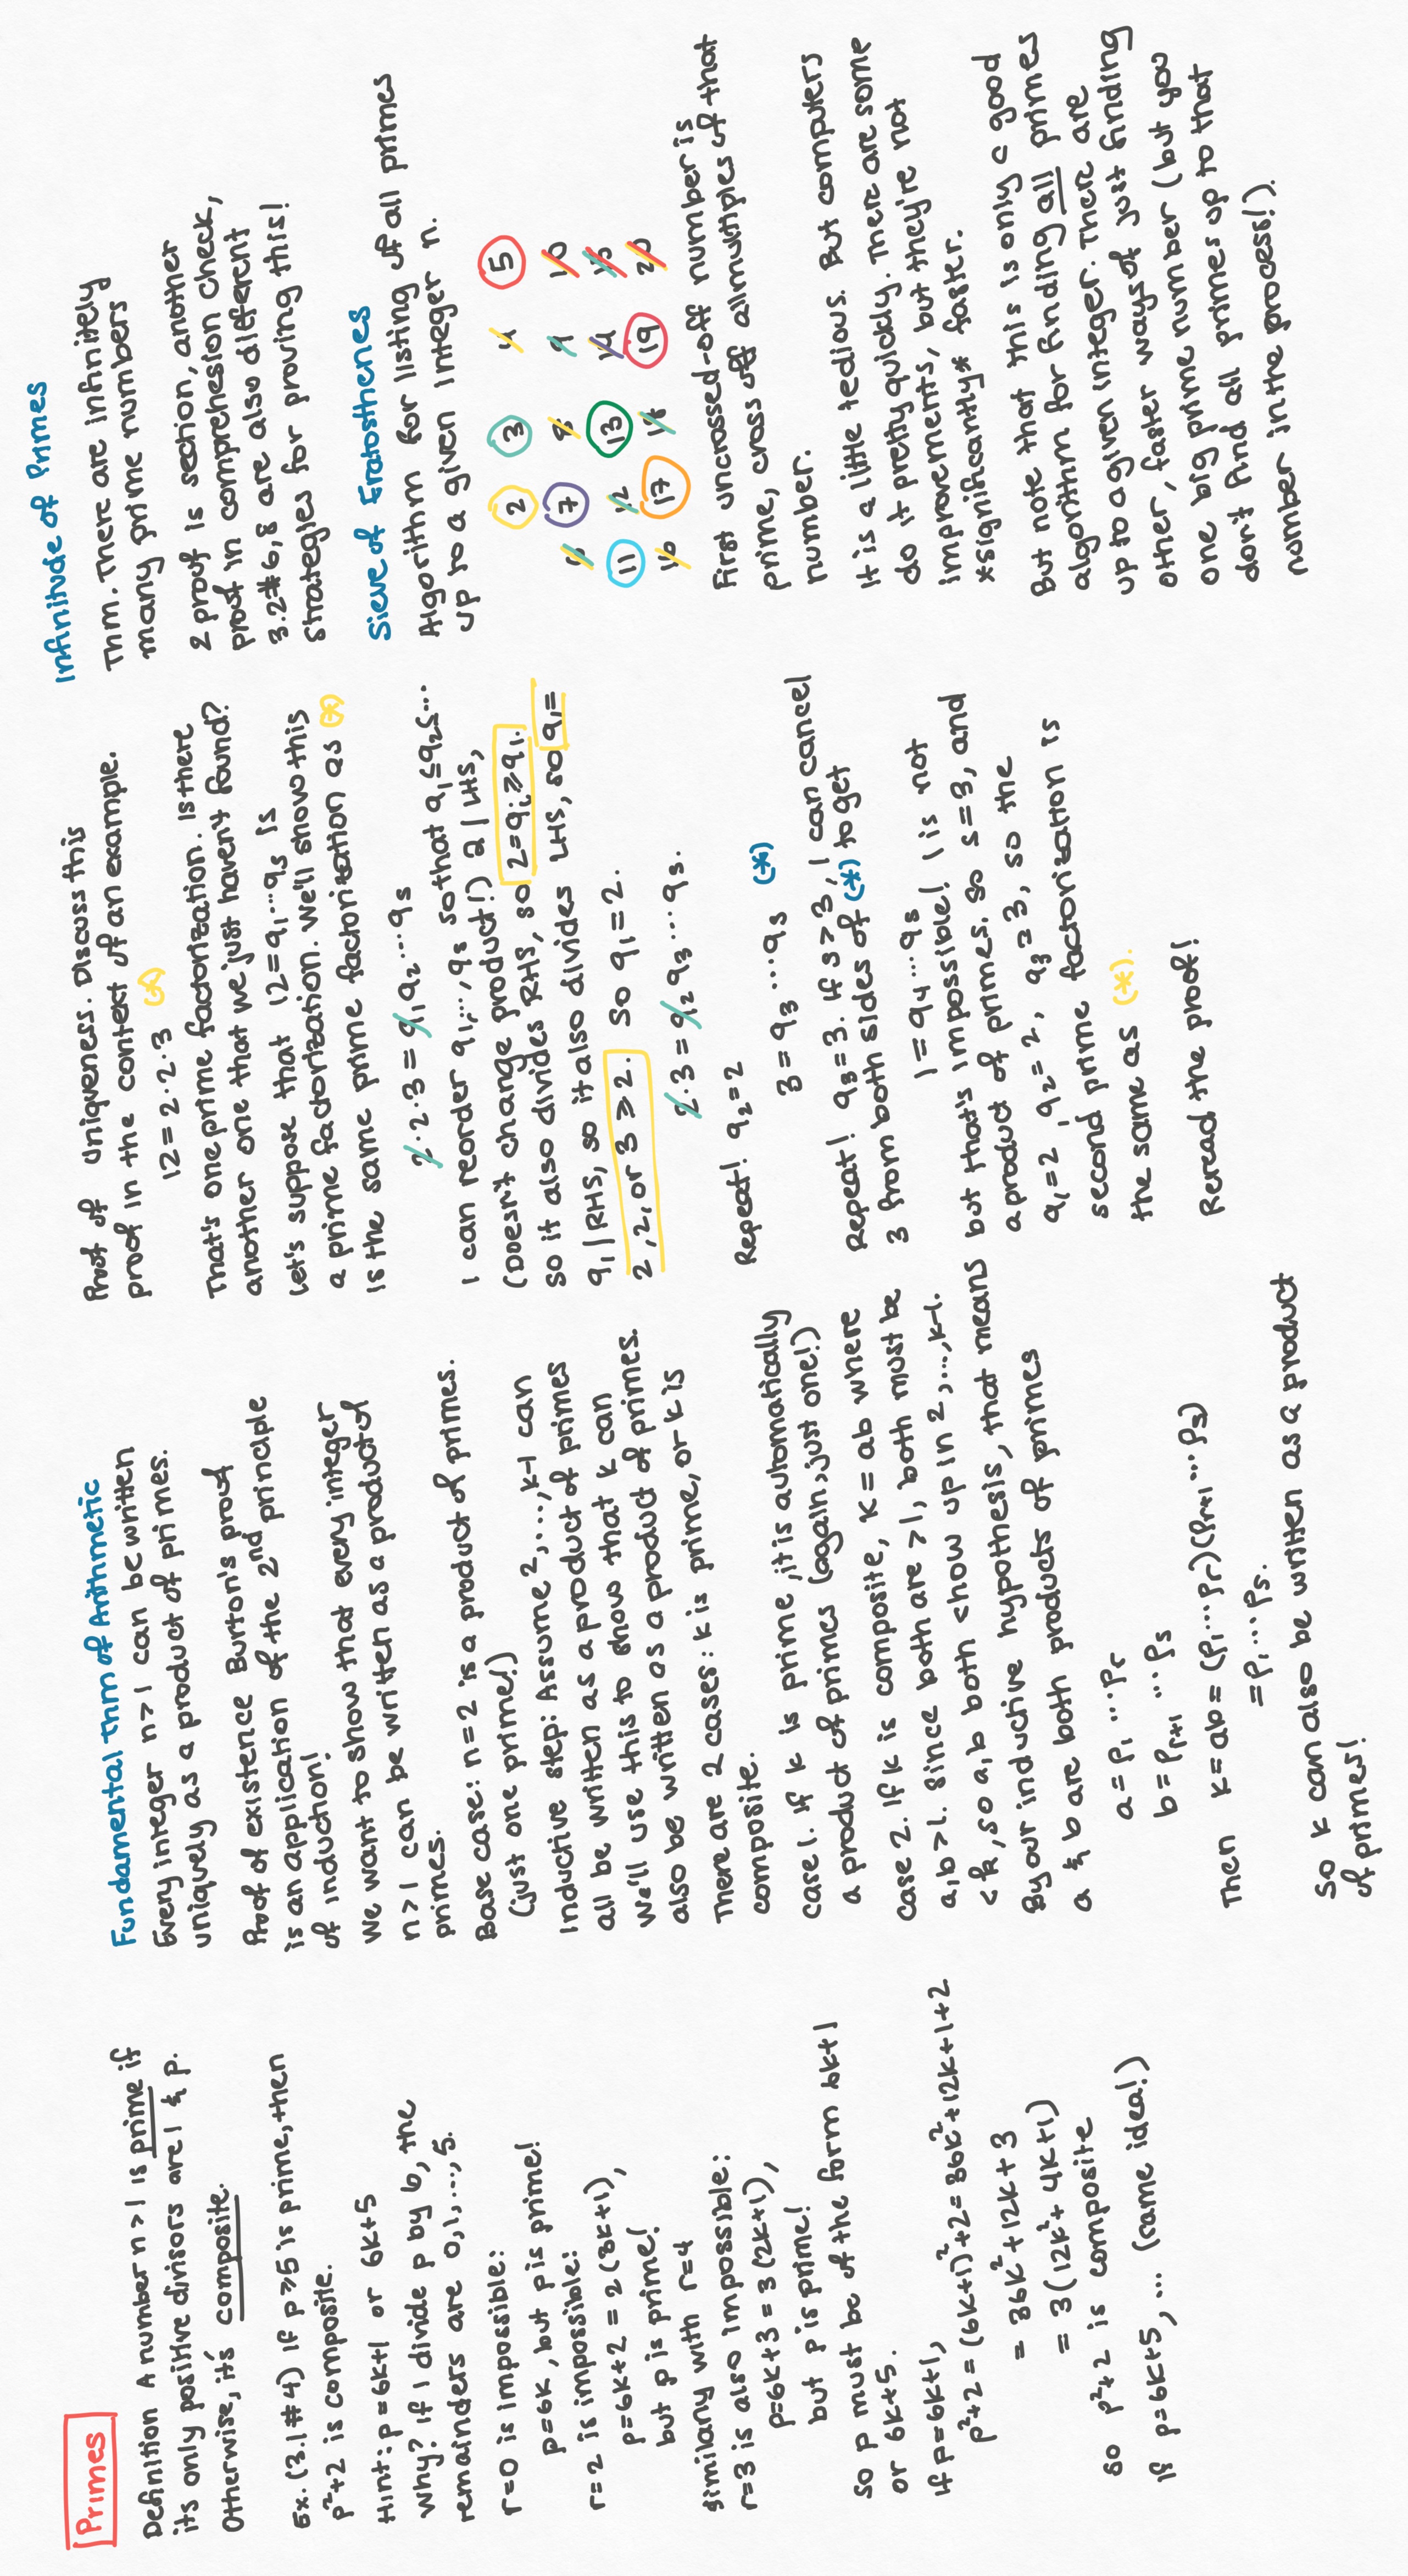 Primes
Definition A number n > 1 is prime if
its only positive divisors are 1 & p.
Otherwise, it's composite.
Ex. (3.1 #4) If p ≥ 5 is prime, then
p²+2 is composite.
Hint: p = 6k+1 or 6k+5
Why? If I divide p by 6, the
remainders are 0, 1, ..., 5.
r=0 is impossible:
p=6k, but p is prime!
r=2 is impossible:
p=6k+2 = 2(3k+1),
but p is prime!
Similarly with r=4
r=3 is also impossible:
p=6k+3 = 3(2k+1),
but p is prime!
So p must be of the form 6k+1
or 6k+5.
If p=6k+1,
p²+2 = (6k+1)²+2 = 36k²+12k+1+2
= 36k²+12k+3
= 3(12k²+4k+1)
So p²+2 is composite
If p=6k+5, ... (same idea!)
Fundamental Thm of Arithmetic
Every integer n > 1 can be written
uniquely as a product of primes.
Proof of existence Burton's proof
is an application of the 2nd principle
of induction!
We want to show that every integer
n > 1 can be written as a product of
primes.
Base case: n=2 is a product of primes.
(just one prime!)
Inductive step: Assume 2, ..., k-1 can
all be written as a product of primes
We'll use this to show that k can
also be written as a product of primes.
There are 2 cases: k is prime, or k is
composite.
Case 1. If k is prime, it is automatically
a product of primes (again, just one!)
Case 2. If k is composite, k = ab where
a, b > 1. Since both are > 1, both must be
< k, so a, b both show up in 2, ..., k-1.
By our inductive hypothesis, that means
a & b are both products of primes
a = p₁ ··· pᵣ
b = pᵣ₊₁ ··· pₛ
Then k = ab = (p₁ ··· pᵣ)(pᵣ₊₁ ··· pₛ)
= p₁ ··· pₛ.
So k can also be written as a product
of primes!
Proof of Uniqueness. Discuss this
proof in the context of an example.
12 = 2·2·3 (*)
That's one prime factorization. Is there
another one that we just haven't found?
Let's suppose that 12 = q₁ ··· qₛ is
a prime factorization. We'll show this
is the same prime factorization as (*)
2·2·3 = q₁ q₂ ··· qₛ
I can reorder q₁, ..., qₛ so that q₁ ≤ q₂ ≤ ···
(Doesn't change product!) 2 | LHS,
so it also divides RHS, so 2 = qᵢ ≥ q₁.
q₁ | RHS, so it also divides LHS, so q₁ =
2, 2, or 3 ≥ 2. So q₁ = 2.
2·3 = q₂ q₃ ··· qₛ.
Repeat! q₂ = 2
3 = q₃ ··· qₛ (*)
Repeat! q₃ = 3. If s > 3, I can cancel
3 from both sides of (*) to get
1 = q₄ ··· qₛ
but that's impossible! 1 is not
a product of primes. So s=3, and
q₁ = 2, q₂ = 2, q₃ = 3, so the
second prime factorization is
the same as (*).
Reread the proof!
Infinitude of Primes
Thm. There are infinitely
many prime numbers
2 proof is section, another
proof in comprehesion check,
3.2 #6, 8 are also different
strategies for proving this!
Sieve of Eratosthenes
Algorithm for listing of all primes
up to a given integer n.
2 3 4 5
6 7 8 9 10
11 12 13 14 15
16 17 18 19 20
First uncrossed-off number is
prime, cross off all multiples of that
number.
It is a little tedious. But computers
do it pretty quickly. There are some
improvements, but they're not
*significantly* faster.
But note that this is only a good
algorithm for finding all primes
up to a given integer. There are
other, faster ways of just finding
one big prime number (but you
don't find all primes up to that
number in the process!).